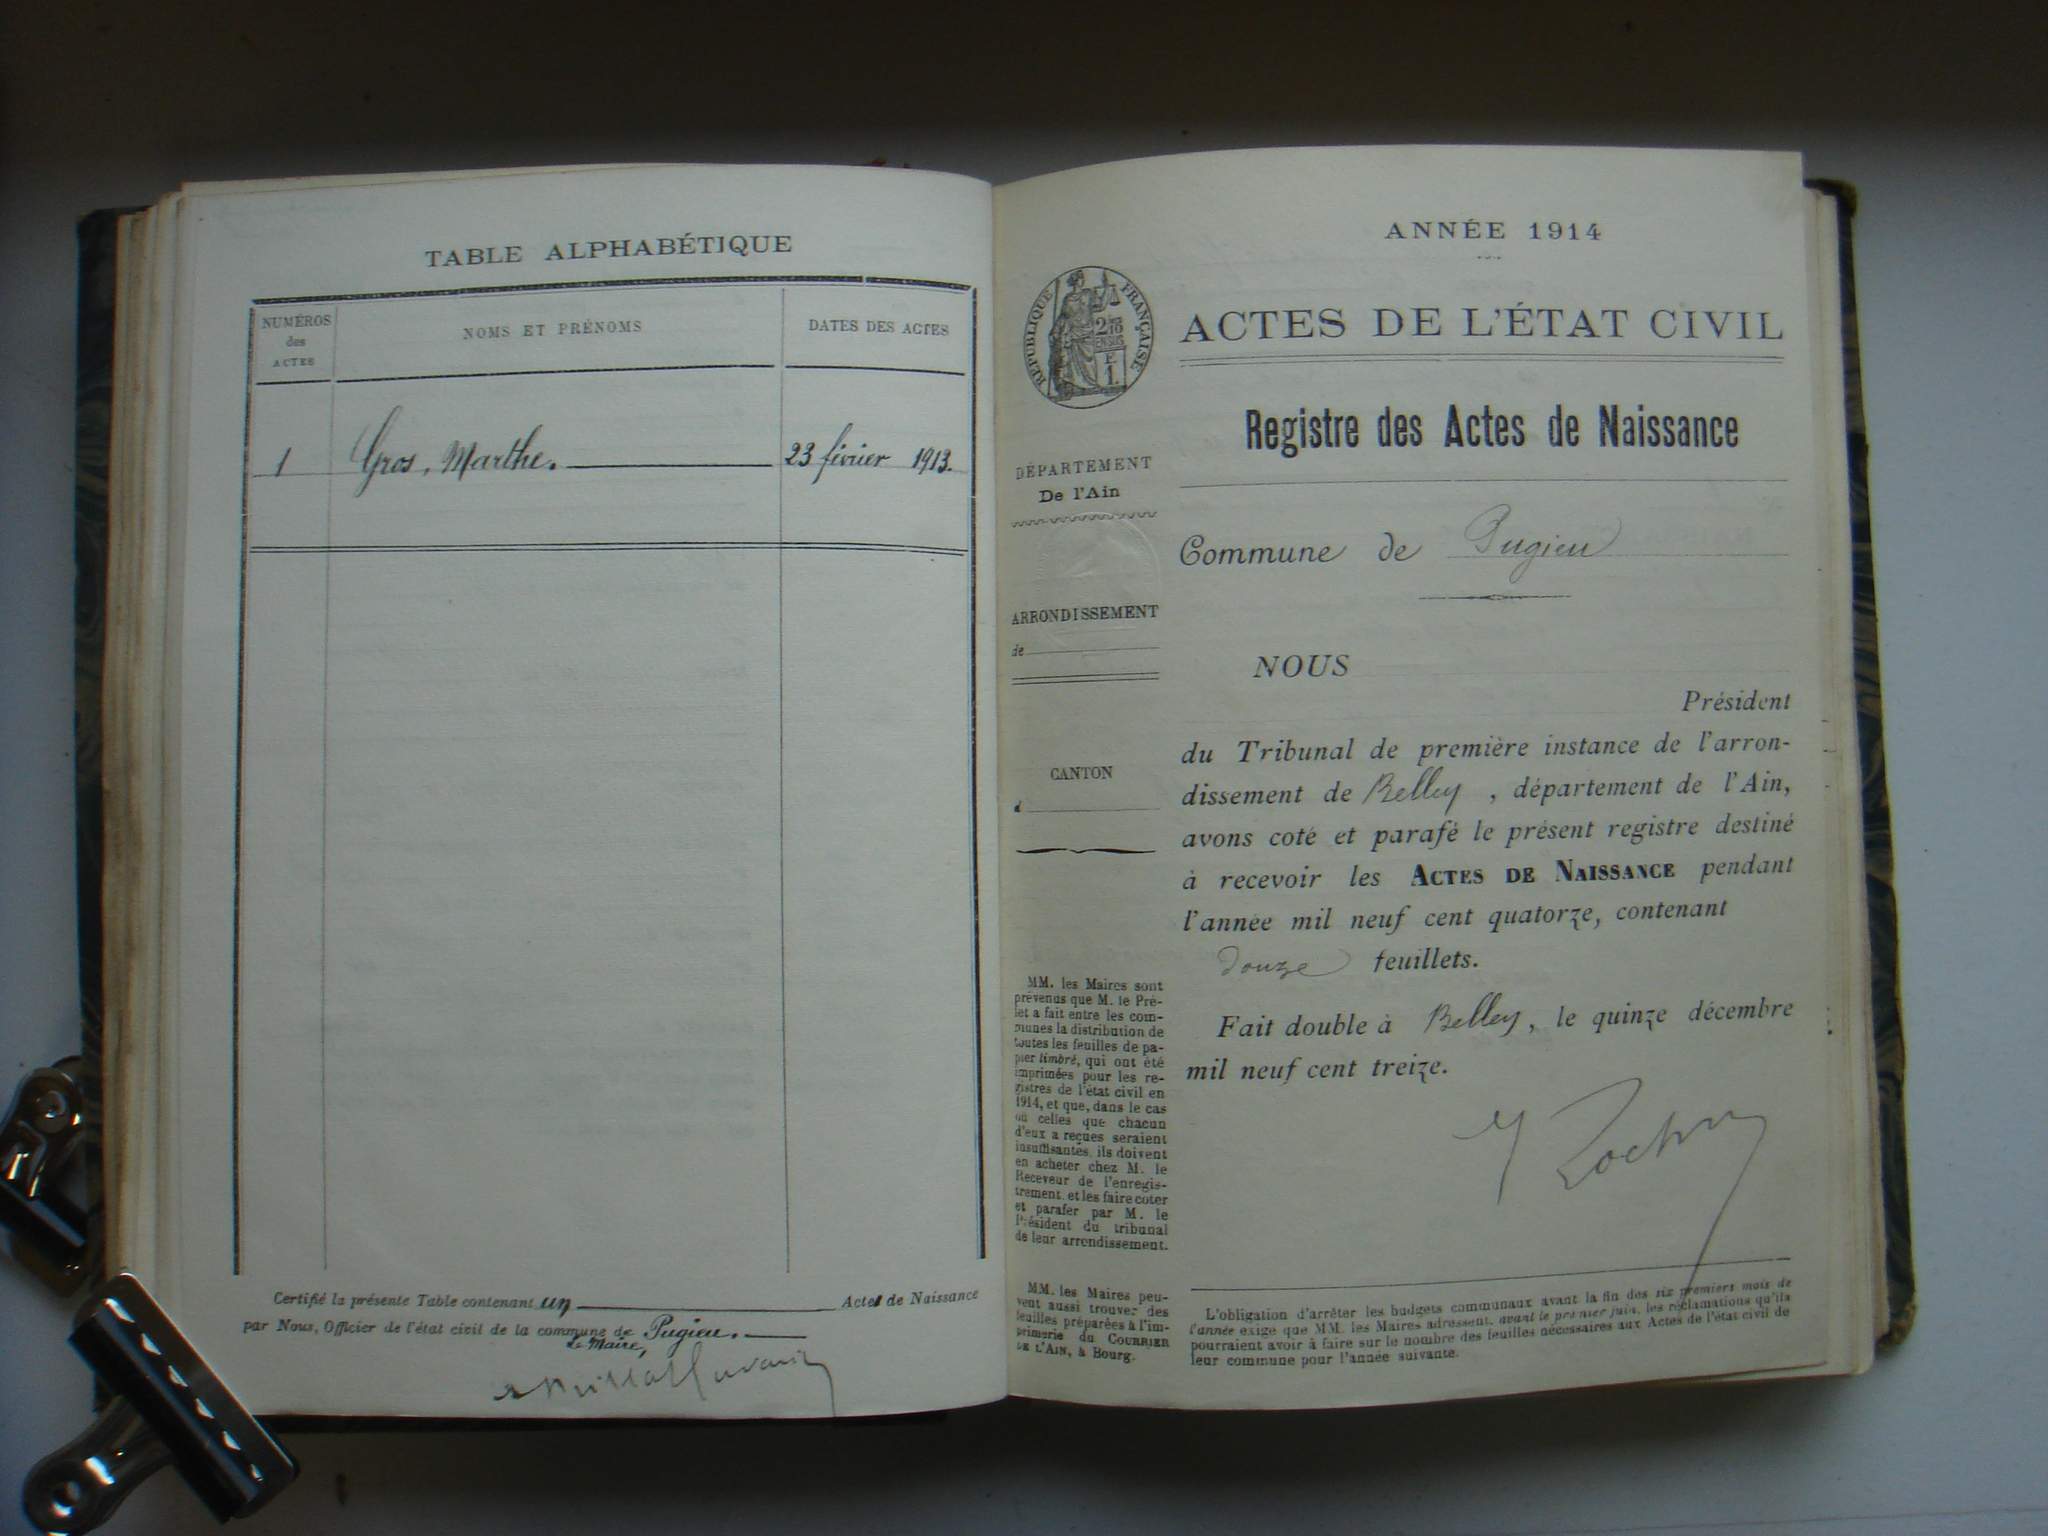 TABLE ALPHABÉTIQUE
NUMÉROS
des
ACTES
NOMS ET PRÉNOMS
DATES DES ACTES
1 Gros, Marthe. 23 février 1913.
Certifié la présente Table contenant un Acte de Naissance
par Nous, Officier de l'état civil de la commune de Pugieu.
Le Maire,
ANNÉE 1914
RÉPUBLIQUE FRANÇAISE
ACTES DE L'ÉTAT CIVIL
Registre des Actes de Naissance
DÉPARTEMENT
De l'Ain
Commune de Pugieu
ARRONDISSEMENT
de
CANTON
d
NOUS
Président
du Tribunal de première instance de l'arron-
dissement de Belley, département de l'Ain,
avons coté et parafé le présent registre destiné
à recevoir les ACTES DE NAISSANCE pendant
l'année mil neuf cent quatorze, contenant
douze feuillets.
Fait double à Belley, le quinze décembre
mil neuf cent treize.
MM. les Maires sont
prévenus que M. le Pré-
fet a fait entre les com-
munes la distribution de
toutes les feuilles de pa-
pier timbré, qui ont été
imprimées pour les re-
gistres de l'état civil en
1914, et que, dans le cas
où celles que chacun
d'eux a reçues seraient
insuffisantes, ils doivent
en acheter chez M. le
Receveur de l'enregis-
trement, et les faire coter
et parafer par M. le
Président du tribunal
de leur arrondissement.
MM. les Maires peu-
vent aussi trouver des
feuilles préparées à l'im-
primerie du COURRIER
DE L'AIN, à Bourg.
L'obligation d'arrêter les budgets communaux avant la fin des six premiers mois de
l'année exige que MM. les Maires adressent, avant le premier juin, les réclamations qu'ils
pourraient avoir à faire sur le nombre des feuilles nécessaires aux Actes de l'état civil de
leur commune pour l'année suivante.